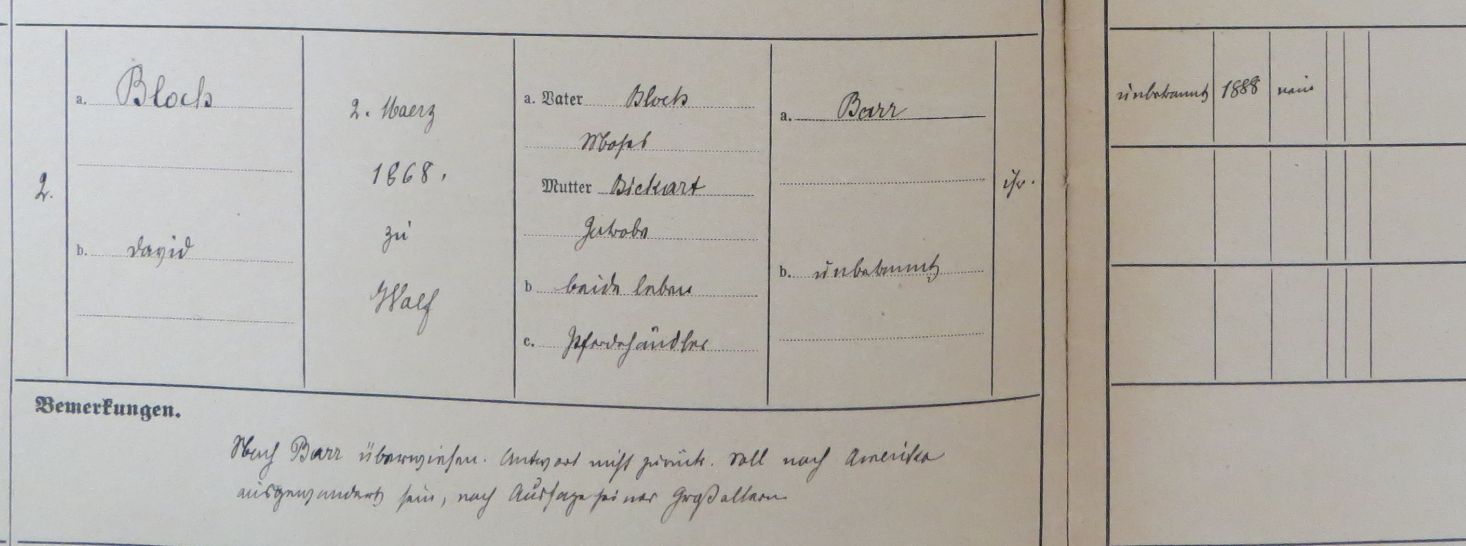 2.
a. Bloch
b. David
2. Maerz
1868.
zu
Walf
a. Vater Bloch
Moses
Mutter Bickart
b beide leben
c. Pferdehändler
a. Barr
b. unbekannt
isr.
unbekannt 1888 nein
Bemerkungen.
Nach Barr überwiesen. Antwort nicht zurück. Soll nach Amerika
ausgewandert sein, nach Aussage seiner Großeltern